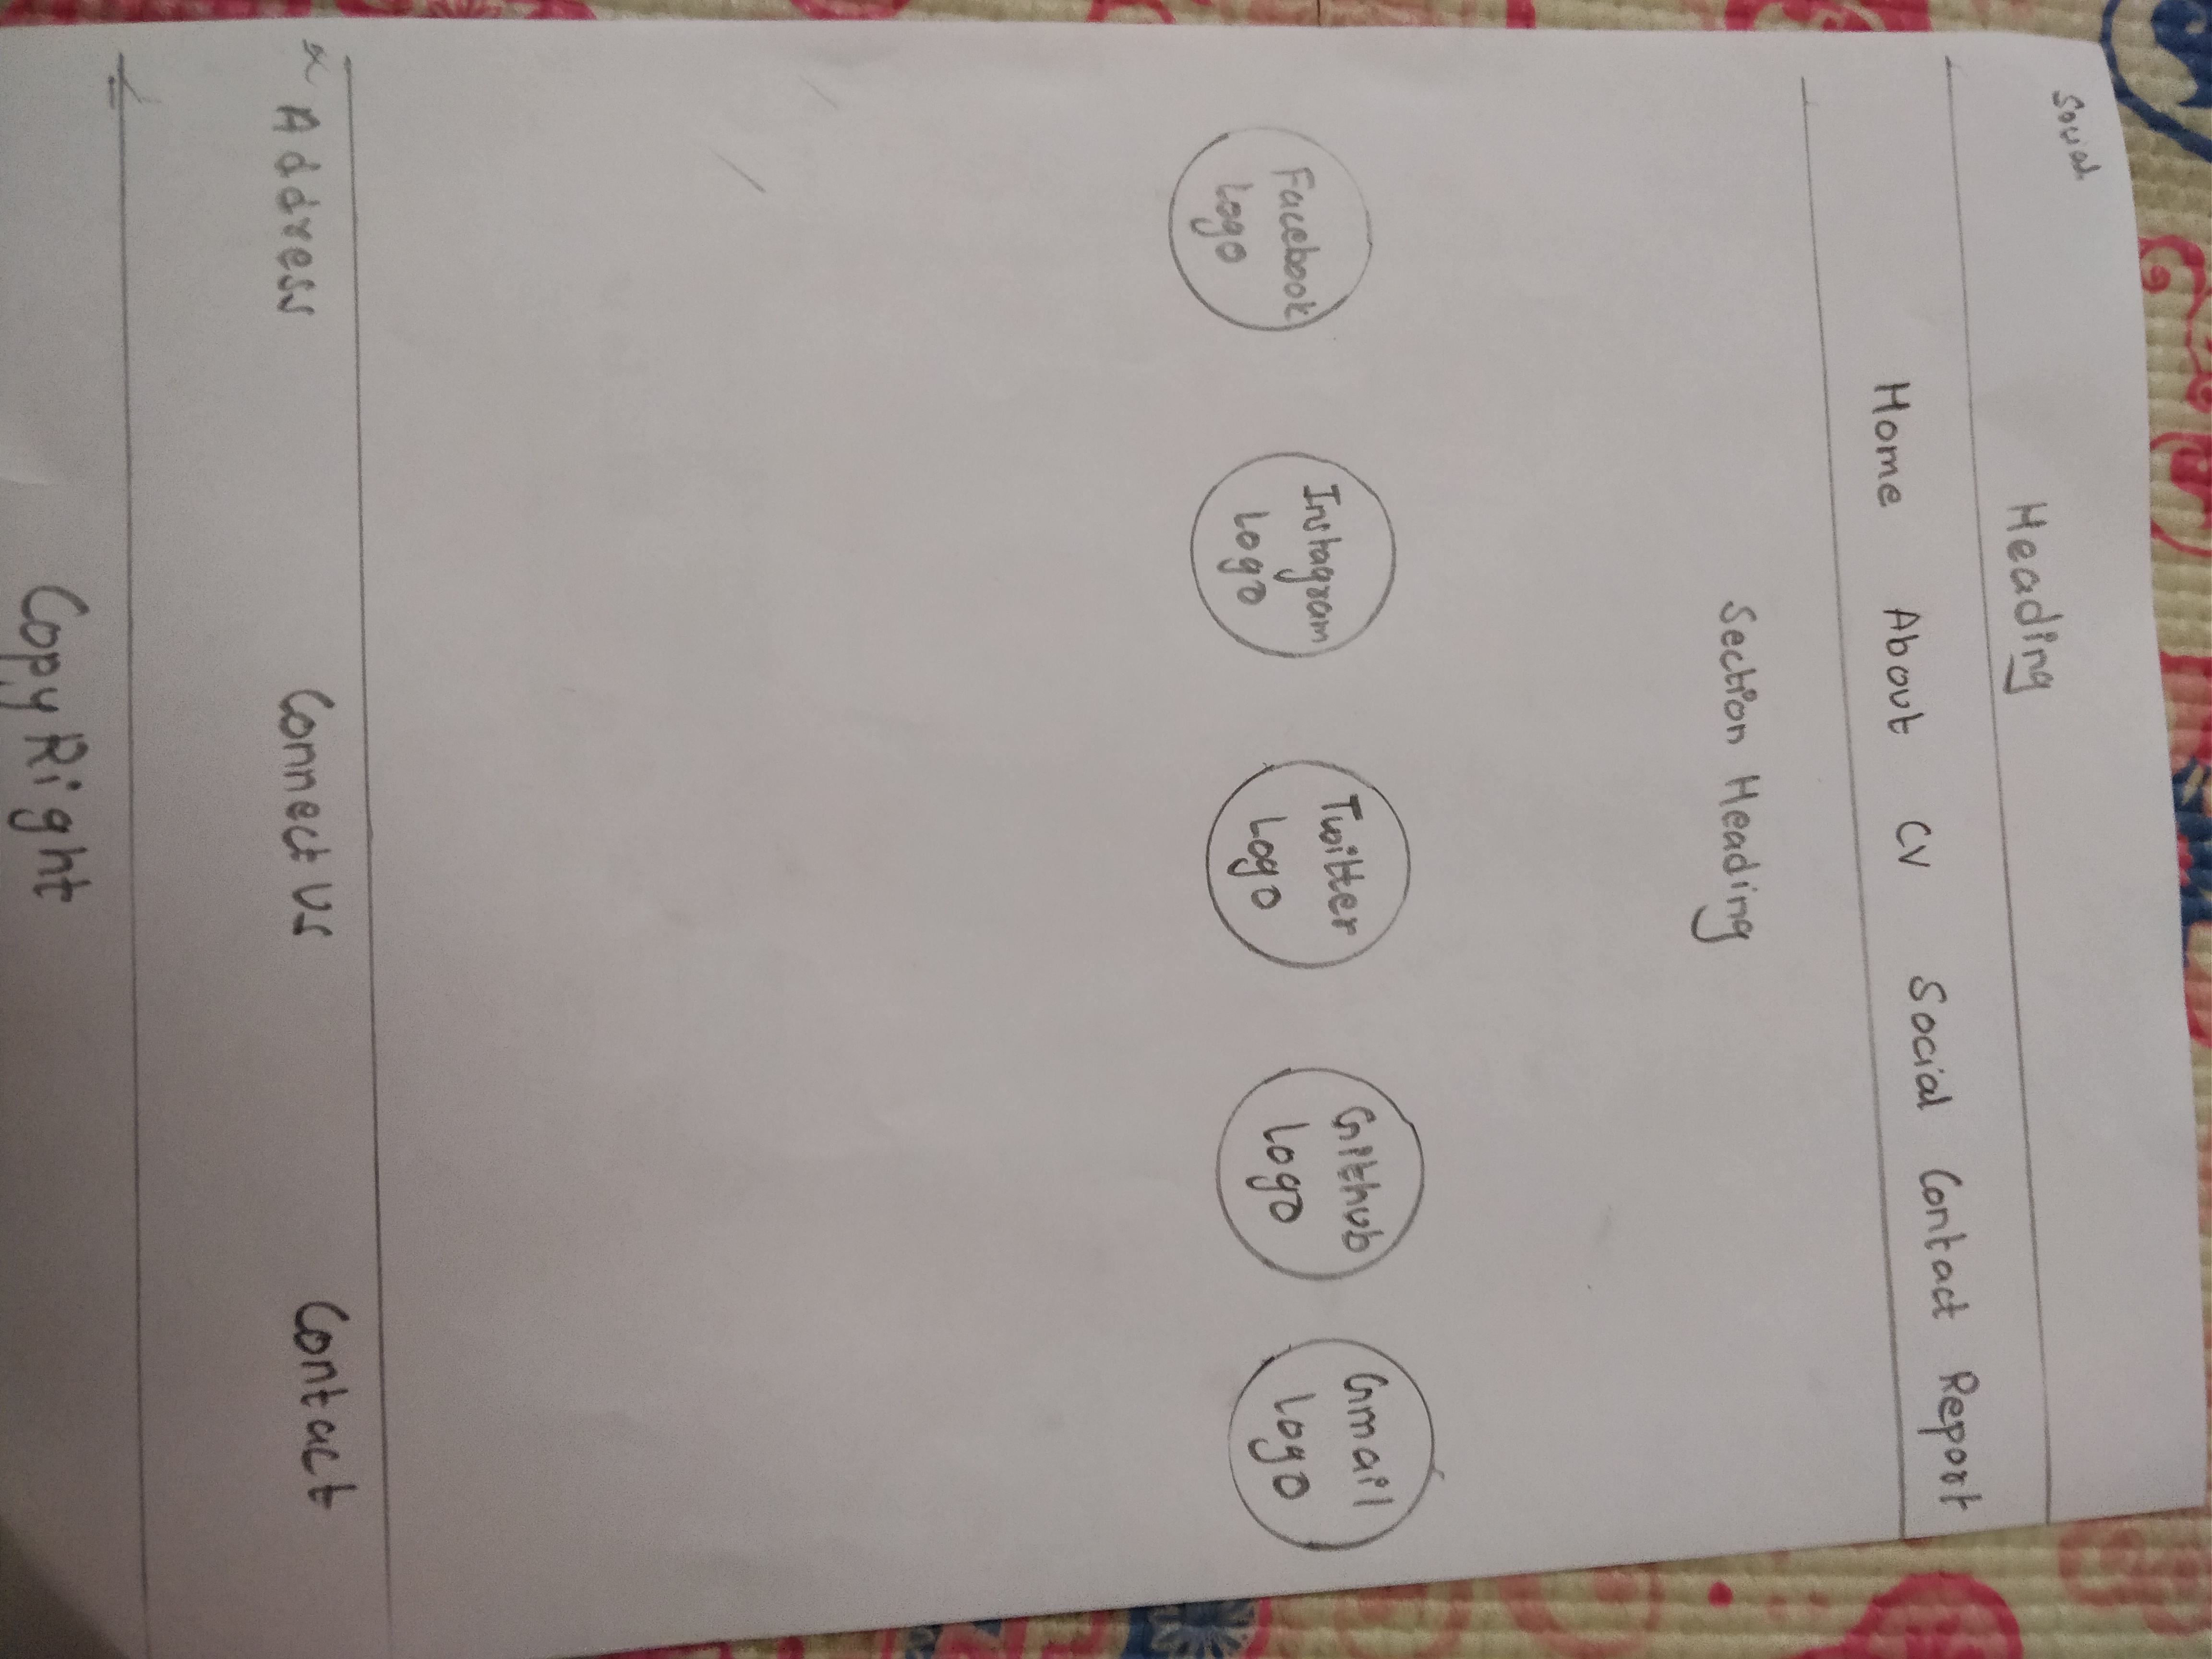 Social
Heading
Home About CV Social Contact Report
Section Heading
Facebook Logo
Instagram Logo
Twitter Logo
Github Logo
Gmail Logo
Address Connect Us Contact
CopyRight